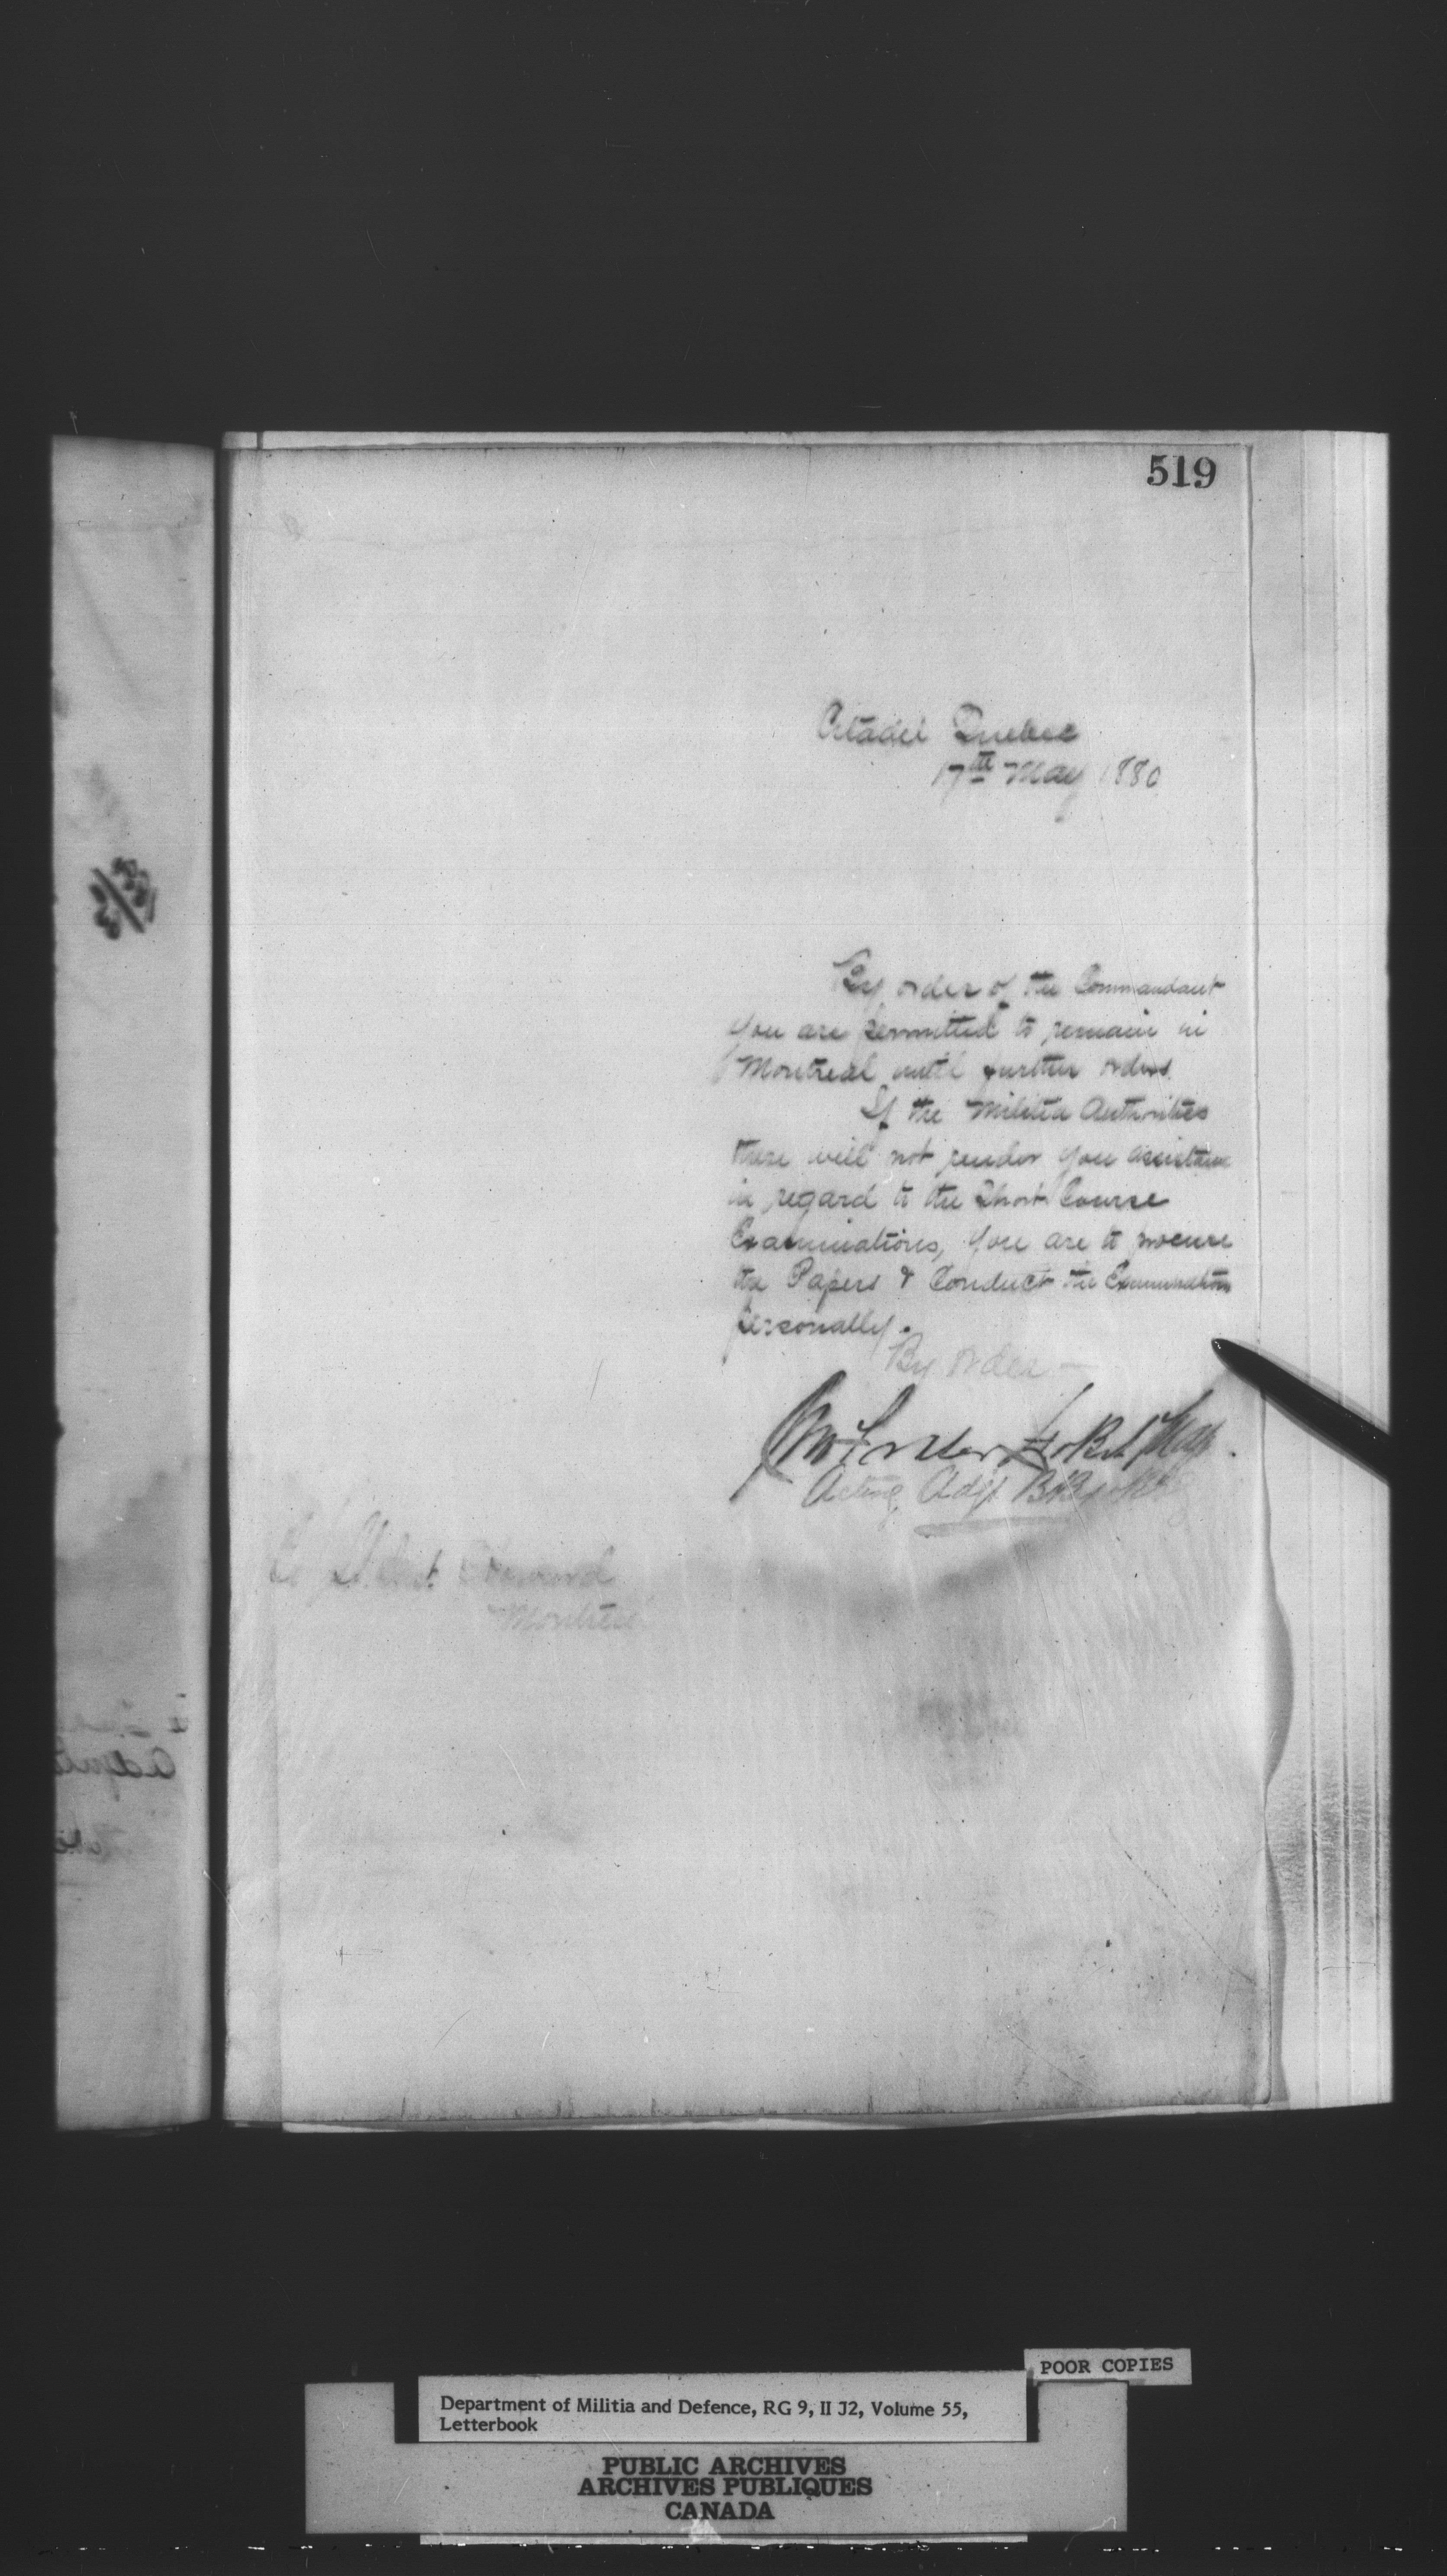 519
Citadel Quebec
17th May 1880
By order of the Commandant
you are permitted to remain in
Montreal until further orders.
If the Militia Authorities
there will not render you assistance
in regard to the Short Course
Examinations, you are to procure
the Papers & Conduct the Examinations
personally.
By order
Acting Adjt
Montreal
POOR COPIES
Department of Militia and Defence, RG 9, II J2, Volume 55,
Letterbook
PUBLIC ARCHIVES
ARCHIVES PUBLIQUES
CANADA